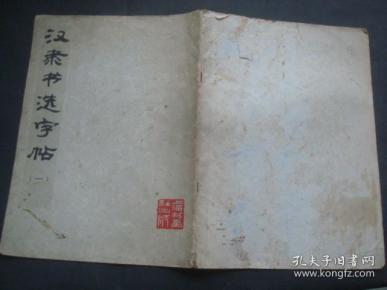 汉隶书选字帖
(一)
孔夫子旧书网
www.kongfz.com